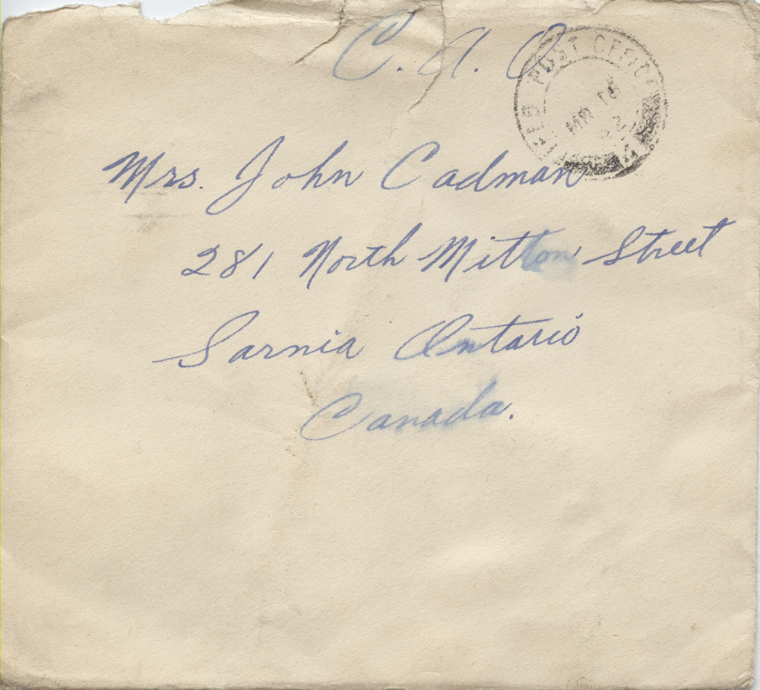 C. A. O
FIELD POST OFFICE
MR 16
Mrs. John Cadman
281 North Mitton Street
Sarnia Ontario
Canada.